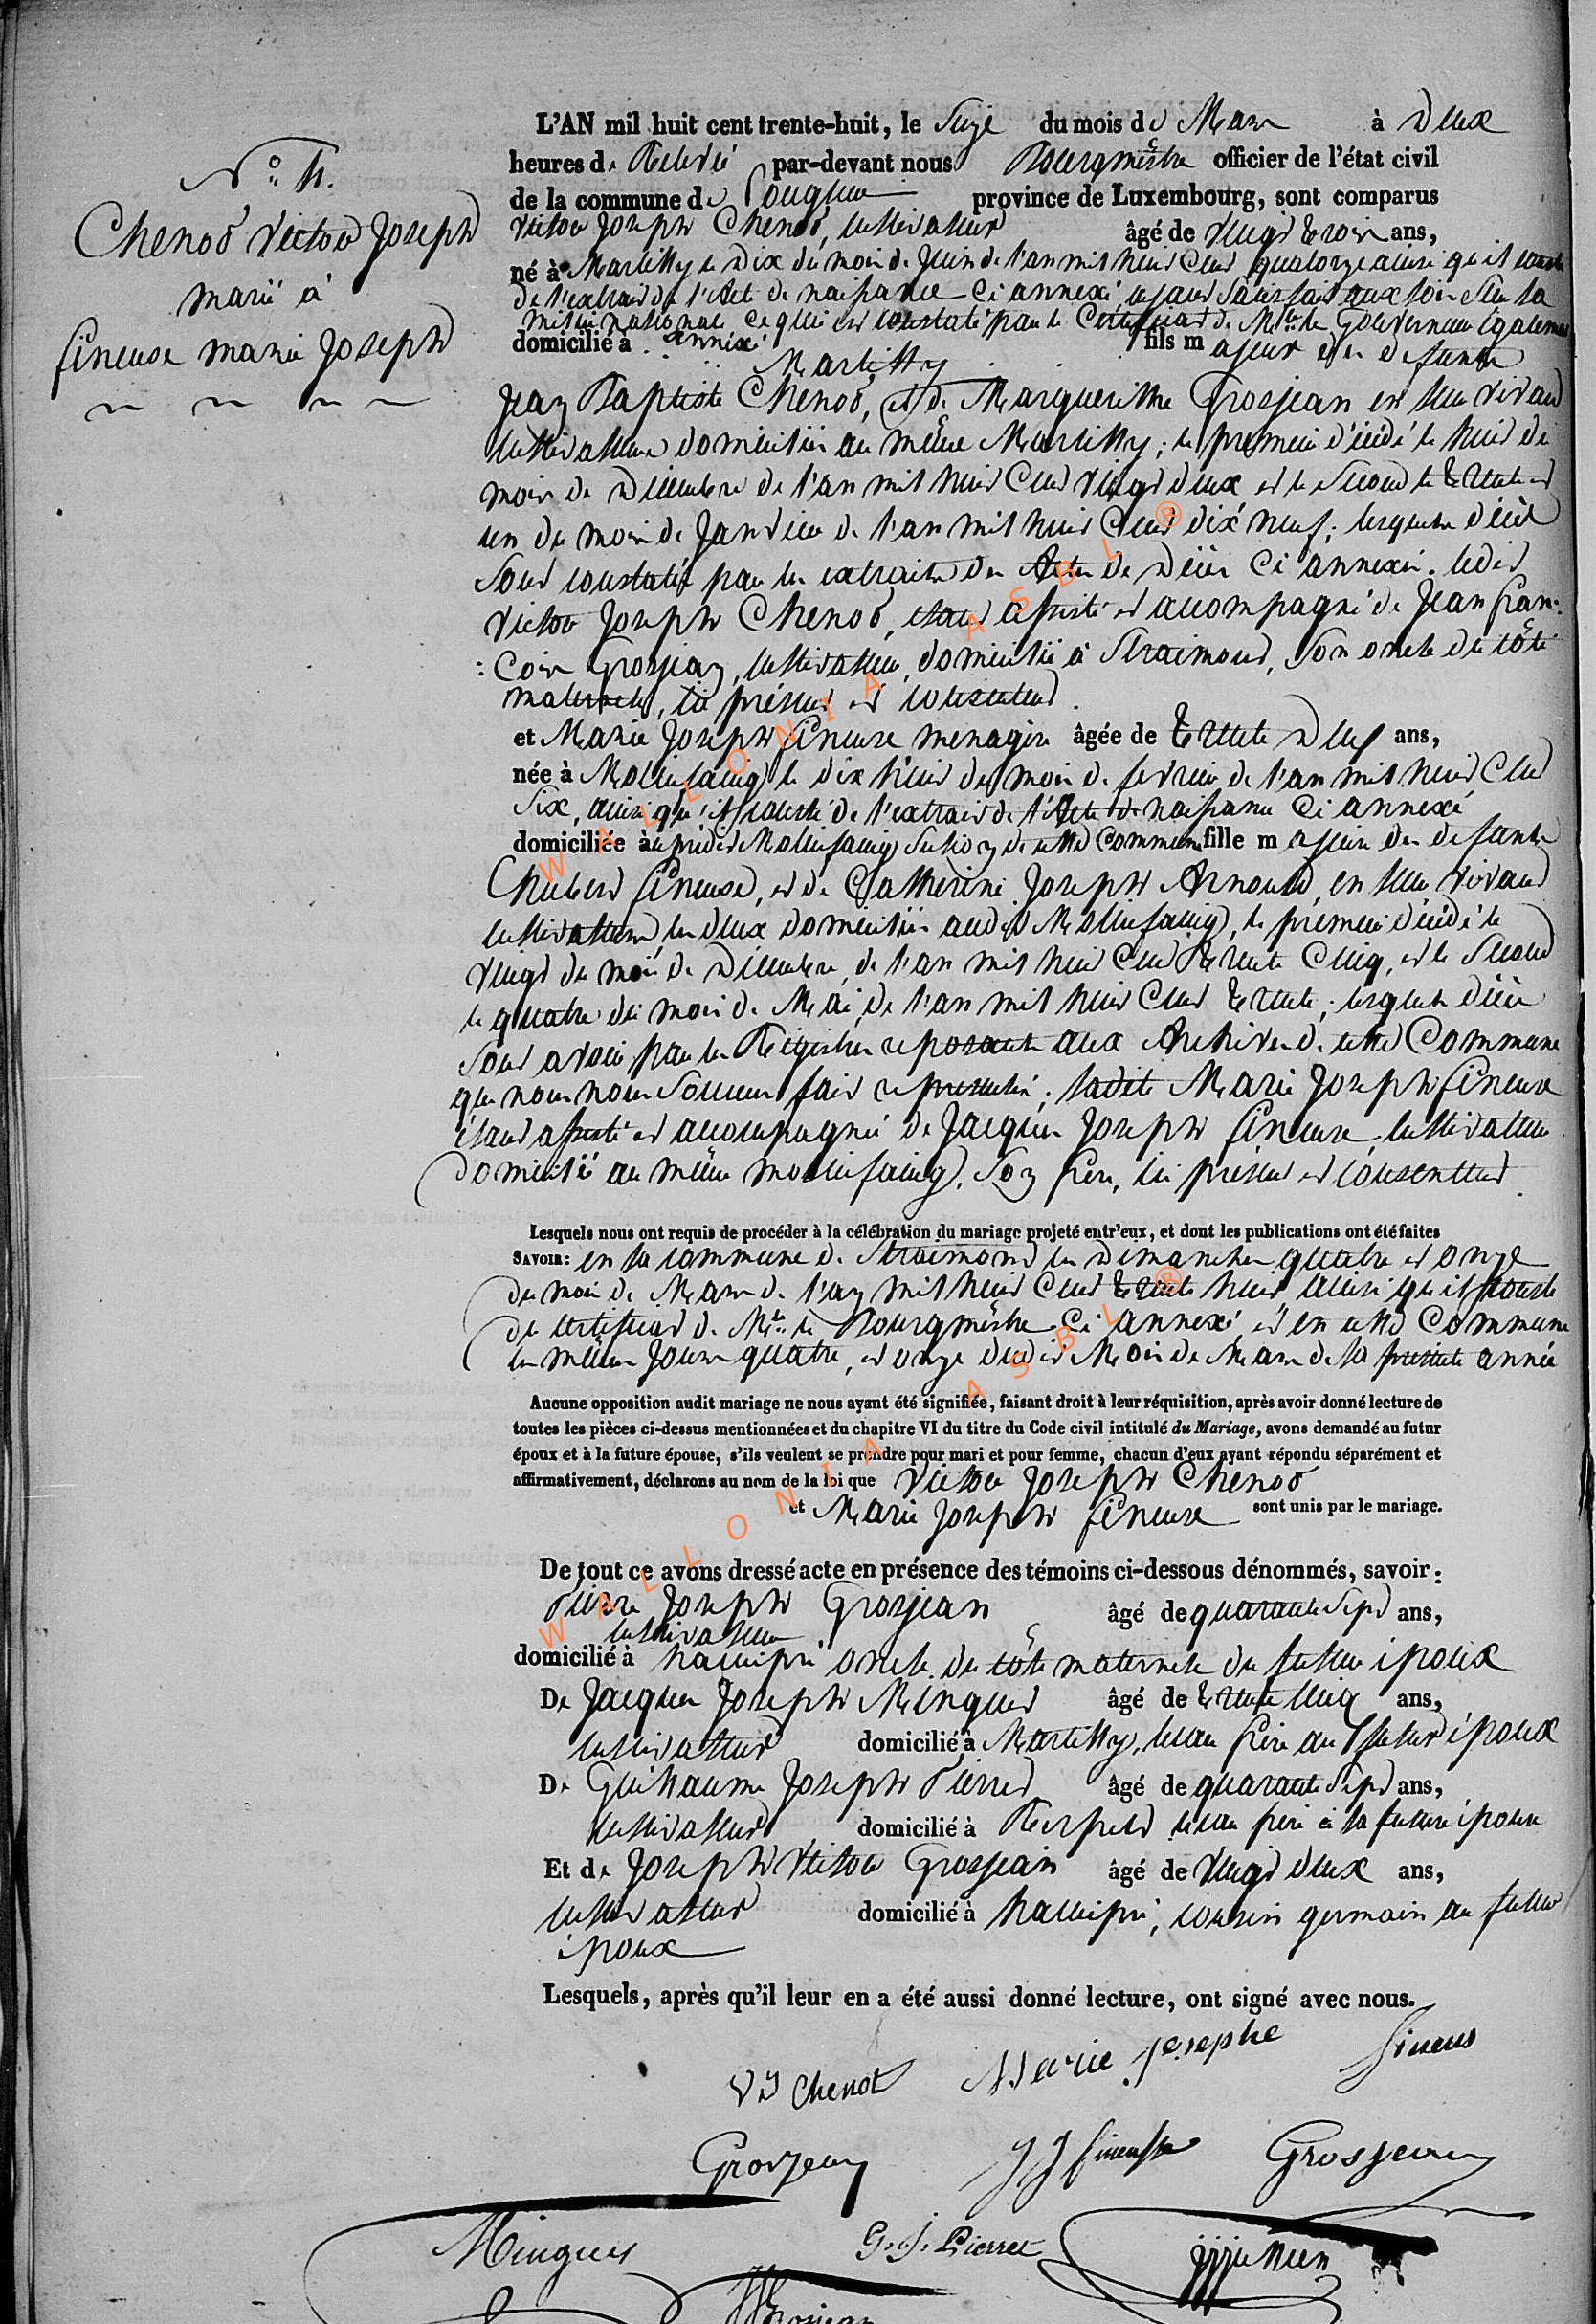 N° 4.
Chenot Victor Joseph
marié à
fineuse marie Joseph
L'AN mil huit cent trente-huit, le Seize du mois de Mars à Deux
heures de Relevée par-devant nous Bourgmestre officier de l'état civil
de la commune de province de Luxembourg, sont comparus
Victor Joseph Chenot, cultivateur âgé de vingt trois ans,
né à Martilly le Dix du mois de Juin de l'an mil huit Cent quatorze ainsi qu'il conste
de l'extrait de l'Acte de naissance ci annexé, ayant Satisfait aux lois Sur la
milice nationale, ce qui est constaté par le Certificat de Mr le Gouverneur également
domicilié à annexé fils majeur des defunts
Martilly
Jean Baptiste Chenot, et de Marguerithe Grosjean en leur vivant
cultivateurs domiciliés au même Martilly; le premier décédé le huit du
mois de Décembre de l'an mil huit Cent vingt deux et le Second le trente et
un du mois de Janvier de l'an mil huit Cent dix neuf; lesquels décès
Sont constatés par les extraits des Actes de Décès ci annexés. ledit
Victor Joseph Chenot, étant assisté et accompagné de Jean fran-
:cois Grosjean, cultivateur, domicilié à Straimont, Son oncle du côté
maternel, ici présent et consentant.
et Marie Joseph fineuse menagère âgée de trente Deux ans,
née à Molinfaing le dix huit du mois de fevrier de l'an mil huit Cent
Six, ainsi qu'il conste de l'extrait de l'Acte de naissance ci annexé
domiciliée à Molinfaing Section de cette Commune fille majeure des defunts
Hubert fineuse, et de Catherine Joseph Arnould, en leur vivant
cultivateurs les deux domiciliés audit Molinfaing, le premier décédé le
vingt du mois de Décembre, de l'an mil huit Cent trente Cinq, et le Second
le quatre du mois de Mai, de l'an mil huit Cent trente; lesquels décès
Sont avoués par les Registres reposants aux Archives de cette Commune
que nous nous Sommes fait representer; ladite Marie Joseph fineuse
étant assisté et accompagnée de Jacques Joseph fineuse cultivateur
domicilié au même molinfaing, Son frère, ici présent et consentant
Lesquels nous ont requis de procéder à la célébration du mariage projeté entr'eux, et dont les publications ont été faites
SAVOIR: en la commune de Straimont les Dimanches quatre et onze
du mois de Mars de l'an mil huit Cent trente huit ainsi qu'il conste
du certificat de Mr le Bourgmestre Ci annexé, et en cette Commune
les mêmes Jours quatre, et onze dudit Mois de Mars de la presente année
Aucune opposition audit mariage ne nous ayant été signifiée, faisant droit à leur réquisition, après avoir donné lecture de
toutes les pièces ci-dessus mentionnées et du chapitre VI du titre du Code civil intitulé du Mariage, avons demandé au futur
époux et à la future épouse, s'ils veulent se prendre pour mari et pour femme, chacun d'eux ayant répondu séparément et
affirmativement, déclarons au nom de la loi que Victor Joseph Chenot
et Marie Joseph fineuse sont unis par le mariage.
De tout ce avons dressé acte en présence des témoins ci-dessous dénommés, savoir:
Pierre Joseph Grosjean âgé de quarante Sept ans,
cultivateur
domicilié à hamipré oncle du côté maternel du futur époux
De Jacques Joseph Minguet âgé de trente Cinq ans,
cultivateur domicilié à Martilly, beau frère au futur époux
De Guillaume Joseph Pierret âgé de quarante Sept ans,
cultivateur domicilié à beau frère à la future épouse
Et de Joseph Victor Grosjean âgé de vingt deux ans,
cultivateur domicilié à hamipré, cousin germain au futur
époux
Lesquels, après qu'il leur en a été aussi donné lecture, ont signé avec nous.
VJ Chenot Marie Josephe fineus
Grosjean JJ fineuse Grosjean
Minguet G. J. Pierret
WALLONIA ASBL ®
WALLONIA ASBL ®